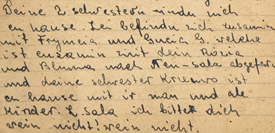 Deine 2 schwestern sindu nich
zu hause. Sei befindu sich zusamin
mit Frymcia und Gucia G. welche
ist zuzamin mit dein Rózia
und Bluma nach Neu-Salz abgefar
und deine schwester ist
zu hause mit ir man und ale
Kinder. L. Sala, ich bitek dich
wein nicht! wein nicht.